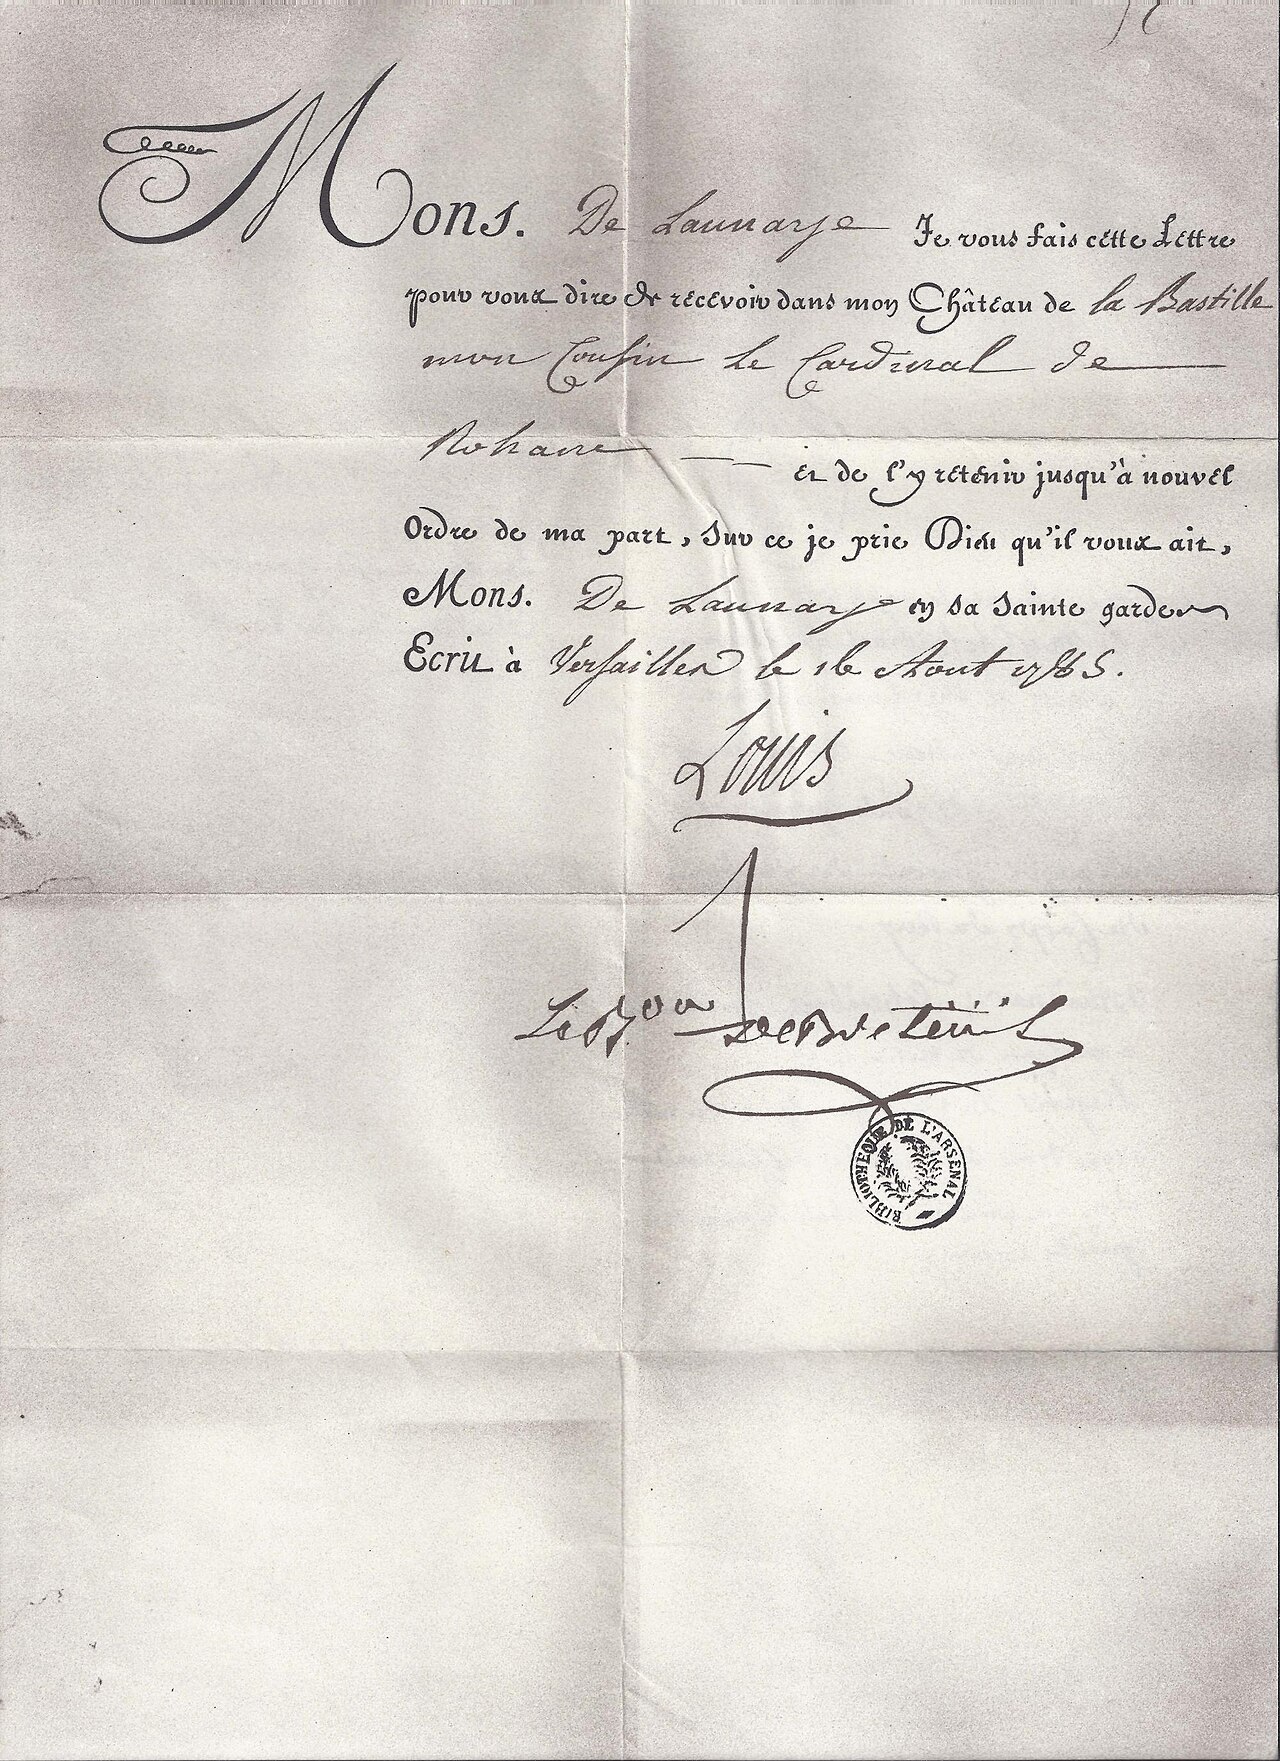 Mons. De Launaye Je vous fais cette Lettre
pour vous dire de recevoir dans mon Château de la Bastille
mon Cousin le Cardinal de
Rohan
et de l'y retenir jusqu'à nouvel
Ordre de ma part, Sur ce je prie Dieu qu'il vous ait,
Mons. De Launaye en sa sainte garde
Ecrit à Versailles le 16 Aout 1785.
Louis
Le Bon De Breteüil
BIBLIOTHEQUE DE L'ARSENAL